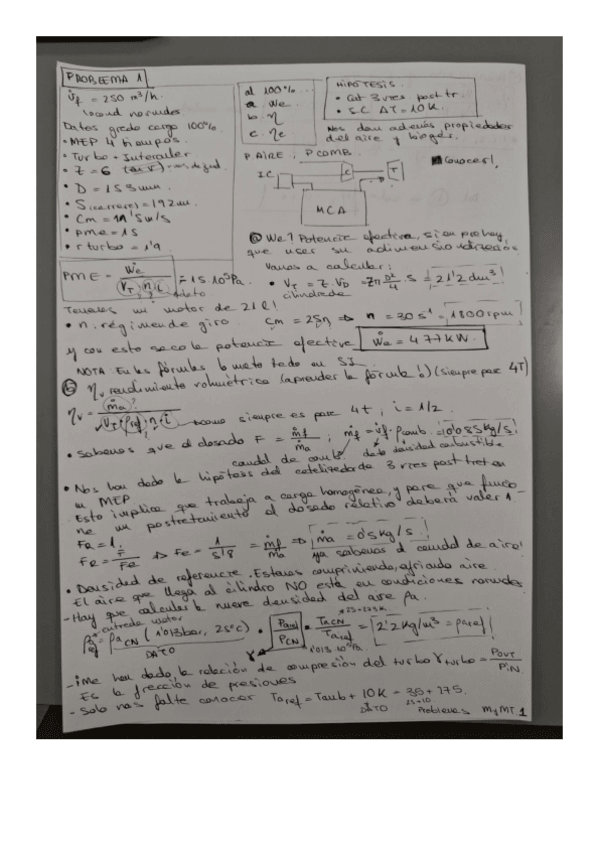 PROBLEMA 1
V̇f = 250 m³/h.
cond normales
Datos grado carga 100%
• MEP 4 tiempos
• Turbo + Intercooler
• Z = 6
• D = 153 mm
• S (carrera) = 192 mm
• Cm = 11'5 m/s
• pme = 15
• r turbo = 1'9
al 100%...
a. We.
b. η
c. ηe
HIPOTESIS
• Cat 3 vias post tr.
• SC ΔT = 10 K.
Nos dan además propiedades
del aire y biogás.
P AIRE, P COMB.
Conocer!
IC
C
T
MCA
PME = Ẇe / VT · n · i = 15·10⁵ Pa.
ⓐ We? Potencia efectiva, si
que usar su adimensionalización
Vamos a calcular:
• VT = Z·VD = Z π D²/4 · S = 21'2 dm³!
cilindrada
Tenemos un motor de 21 l!
• n. régimen de giro. Cm = 2Sn ⇒ n = 30 s⁻¹ = 1800 rpm!
y con esto saco la potencia efectiva Ẇe = 477 kW.
NOTA: En las fórmulas lo meto todo en SI
ⓑ ηv rendimiento volumétrico (aprender la fórmula!) (siempre para 4T)
ηv = ṁa? / VT · ρref · n · i como siempre es para 4t, i = 1/2.
• Sabemos que el dosado F = ṁf / ṁa ; ṁf = V̇f · ρcomb. = 0'085 kg/s!
caudal de comb. dato densidad combustible
• Nos han dado la hipótesis del catalizador de 3 vías post tret en
un MEP
Esto implica que trabaja a carga homogénea, y para que funcio
ne un postratamiento el dosado relativo deberá valer 1 -
FR = 1.
FR = F / Fe ⇒ Fe = 1 / 5'8 = ṁf / ṁa ⇒ ṁa = 0'5 kg/s!
ya sabemos el caudal de aire!
• Densidad de referencia. Estamos comprimiendo, enfriando aire.
El aire que llega al cilindro NO está en condiciones normales
- Hay que calcular la nueva densidad del aire ρa.
entrada motor
ρaCN (1'013 bar, 25°C) · Paref / PCN · TaCN / Taref = 2'2 kg/m³ = ρaref!
DATO
- ¡Me han dado la relación de compresión del turbo rturbo = POUT / PIN
Es la fracción de presiones
- Solo nos falta conocer Taref = Tamb + 10K
DATO
25+10
Problemas MyMT 1